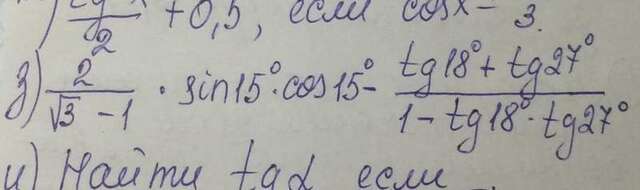 2 + 0,5, если cosx - 3.
з) 2/(√3 - 1) · sin15° · cos15° - (tg18° + tg27°)/(1 - tg18° · tg27°)
и) Найти tgα если